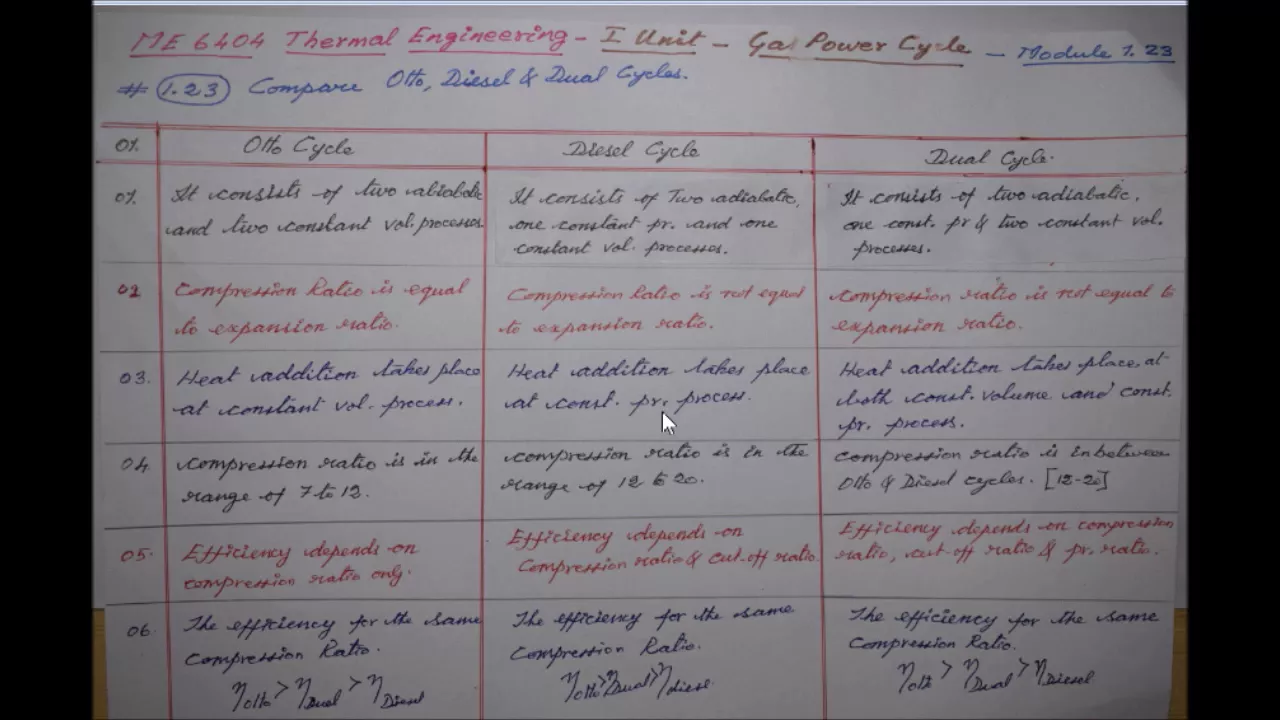 ME 6404 Thermal Engineering - I Unit - Gas Power Cycle - Module 1.23
# 1.23 Compare Otto, Diesel & Dual Cycles.
01. Otto Cycle Diesel Cycle Dual Cycle.
01. It consists of two abiabatic
and two constant vol. processes.
It consists of Two adiabatic,
one constant pr. and one
constant vol. processes.
It consists of two adiabatic,
one const. pr & two constant vol.
processes.
02 Compression Ratio is equal
to expansion ratio.
Compression Ratio is not equal
to expansion ratio.
compression ratio is not equal to
expansion ratio.
03. Heat addition takes place
at constant vol. process.
Heat addition takes place
at const. pr. process.
Heat addition takes place, at
both const. volume and const.
pr. process.
04. compression ratio is in the
range of 7 to 12.
compression ratio is in the
range of 12 to 20.
compression ratio is inbetween
Otto & Diesel cycles. [12-20]
05. Efficiency depends on
compression ratio only.
Efficiency depends on
Compression ratio & cut-off ratio.
Efficiency depends on compression
ratio, cut-off ratio & pr. ratio.
06. The efficiency for the same
Compression Ratio.
η Otto > η Dual > η Diesel
The efficiency for the same
Compression Ratio.
η Otto > η Dual > η diesel
The efficiency for the same
Compression Ratio.
η Otto > η Dual > η Diesel